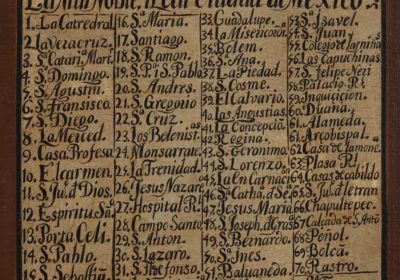 La mui Noble, i Leal Ciudad de Mexico.
1. La Catedral
2. La veracruz.
3. Sᵗᵃ Catari. Mart.
4. S. Domingo.
5. S. Agustin.
6. S. Fransisco.
7. S. Diego.
8. La Merced.
9. Casa Profesa
10. El carmen.
11. S. Ju. d Dios.
12. Espiritu Sᵃ
13. Porta Celi.
14. S. Pablo.
15. S. Sebastiā
16. S. Maria.
17. Santiago.
18. S. Maria.
19. S. P. i S. Pablo
20. S. Andres.
21. S. Gregorio
22. Sᵃ Cruz.
23. Los Betlemist.
24. Monsarrate
25. La Trenidad.
26. Jesus Nazare
27. Hospital R.
28. Campo Santo
29. S. Anton.
30. S. Lazaro.
31. S. Ildefonso.
33. Guadalupe.
34. La Misericor.
35. Belem.
36. S. Ana.
37. La Piedad.
38. S. Cosme.
39. El Calvario.
40. Las Angustias
41. La Concepciō
42. Regina.
43. S. Geronimo.
44. S. Lorenzo.
45. La Encarnaci
46. Sᵗᵃ Catha. d Se.
47. Jesus Maria
48. S. Joseph. d Gra
49. S. Bernardo
50. S. Ines.
51. Balvaneda
53. S. Isavel.
54. S. Juan.
55. Colegio de las niña
56. Las Capuchinas
57. S. Felipe Neri
58. Palacio R.
59. Inquicicion.
60. Diana.
61. Alameda.
61. Arcobispal.
62. Casa de la mone
63. Plasa R.
64. Casas de cabildo
65. S. Ju. d letran
66. Chapultepec.
67. Calcada de S. Antō
68. Peñol.
69. Bolca.
70. Castro.